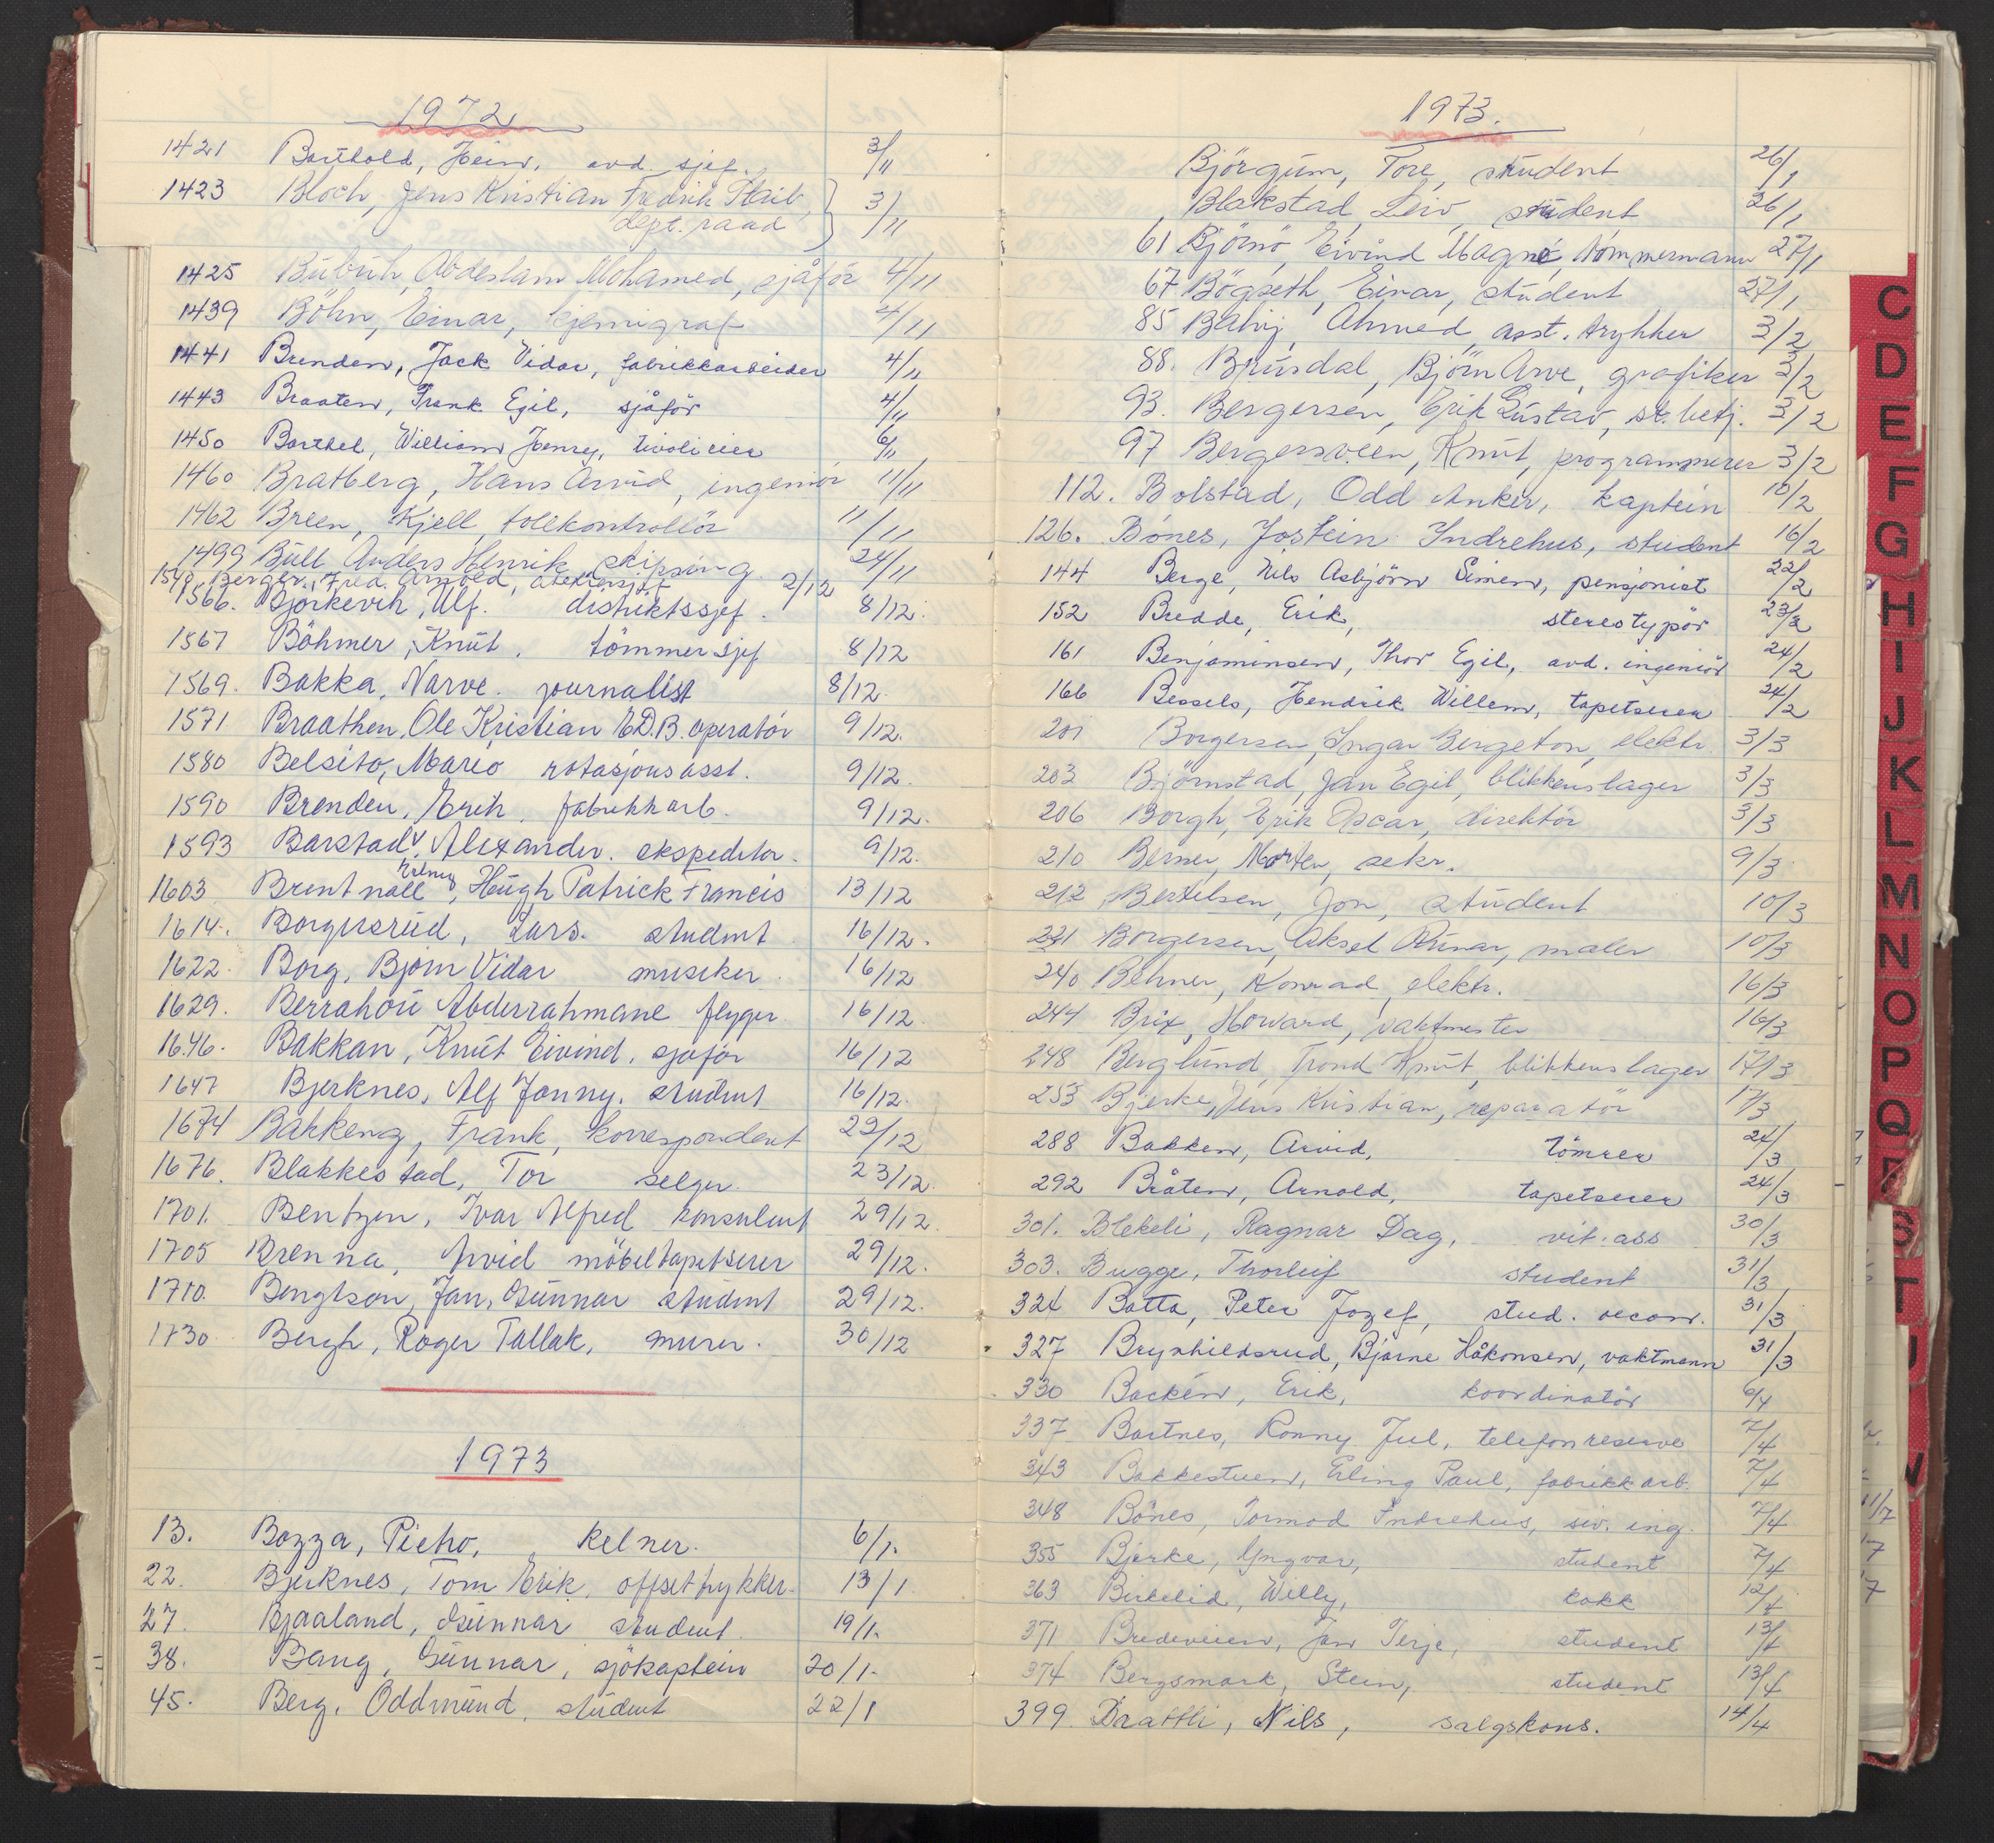 1972
1421 Barthold, Hein, avd. sjef. 3/11
1423 Bloch, Jens Kristian Fredrik 3/11
dept. raad
1425 Bubuh, Abdeslam Mohamed, sjåför 4/11
1439 Böhn, Einar, kjemigraf 4/11
1441 Brenden, Jack Vidar, fabrikkarbeider 4/11
1443 Braaten, Frank Egil, sjåför 4/11
1450 Barthel, William Henry, tivolieier 6/11
1460 Bratberg, Hans Arvid, ingeniör 11/11
1462 Breen, Kjell, tollkontrollör 11/11
1499 Bull Anders Henrik, skipsing. 24/11
1548 Berger, Fred. Arnold, 2/12
1566. Björkevik, Ulf. distriktssjef. 8/12.
1567 Böhmer, Knut. tömmersjef 8/12
1569. Bakka, Narve. journalist 8/12.
1571 Braathen, Ole Kristian E.D.B. operatör 9/12.
1580 Belsito, Mario rotasjonsasst. 9/12.
1590 Brenden, Erik. fabrikkarb. 9/12.
1593 Barstad, Alexander. ekspeditör. 9/12.
1603 Brentnall, Hugh Patrick Francis 13/12
1614. Borgersrud, Lars. student 16/12.
1622. Borg, Bjørn Vidar musiker. 16/12
1629. Berrahou Abderrahmane flyger. 16/12
1646. Bakkan, Knut Eivind. sjåför 16/12
1647 Bjerknes, Alf Jonny. student 16/12.
1674 Bakkeng, Frank, korrespondent 23/12
1676. Blakkestad, Tor selger. 23/12.
1701. Bentzen, Ivar Alfred konsulent 29/12.
1705 Brenna, Arvid möbeltapetserer 29/12.
1710. Bengtson, Jan, Gunnar student 29/12.
1730. Bergh, Roger Tallak, murer. 30/12
1973
13. Bozza, Pietro, kelner. 6/1.
22. Bjerknes, Tom Erik, offsettrykker. 13/1
27. Bjaaland, Gunnar student. 19/1.
38. Bang, Gunnar, sjökaptein 20/1.
45. Berg, Oddmund, student 22/1
1973.
Björgum, Tore, student 26/1
Blakstad, Leiv, student 26/1
61 Björnö, Eivind Magne, tömmermann 27/1
67 Bögseth, Einar, student 27/1
85 Bahij, Ahmed, asst. trykker 3/2
88. Brusdal, Björn Arve, grafiker 3/2
93. Bergersen, Erik Gustav, st. betj. 3/2
97 Bergersveen, Knut, programmerer 3/2
112. Bolstad, Odd Anker, kaptein 10/2
126. Bönes, Jostein Indrehus, student 16/2
144 Berge, Nils Asbjörn Simen, pensjonist 22/2
152 Bredde, Erik, stereotypör 23/2
161 Benjaminsen, Thor Egil, avd. ingeniör 24/2
166 Bessels, Hendrik Willem, tapetserer 24/2
201 Borgersen, Ingar Bergeton, elektr. 3/3
203 Björnstad, Jan Egil, blikkenslager 3/3
206 Borgh, Erik Oscar, direktör 3/3
210 Berner, Morten, sekr. 9/3
212 Bertelsen, Jon, student 10/3
221 Borgersen, Aksel Runar, maler 10/3
240 Behner, Konrad, elektr. 16/3
244 Brix, Howard, vaktmester 16/3
248 Berglund, Trond Knut, blikkenslager 17/3
253 Bjerke, Jens Kristian, reparatör 17/3
288 Bakken, Arvid, tömrer 24/3
292 Bråten, Arnold, tapetserer 24/3
301. Blekeli, Ragnar Dag, vit. ass 30/3
303. Bugge, Thorleif student 31/3
324 Batta, Peter Jozef, stud. oecon. 31/3
327 Brynhildsrud, Bjarne Håkonsen, vaktmann 31/3
330 Backén, Erik, koordinatör 6/4
337 Bartnes, Ronny Jul, telefonreserve 7/4
343 Bakkestuen, Erling Paul, fabrikkarb. 7/4
348 Bönes, Tormod Indrehus, siv. ing. 7/4
355 Bjerke, Yngvar, student 7/4
363 Birkelid, Willy, kokk 12/4
371 Bredeveien, Jan Terje, student 13/4
374 Bergsmark, Stein, student 13/4
399. Brattli, Nils, salgskons. 14/4
C
D
E
F
G
H
I
J
K
L
M
N
O
P
Q
R
S
T